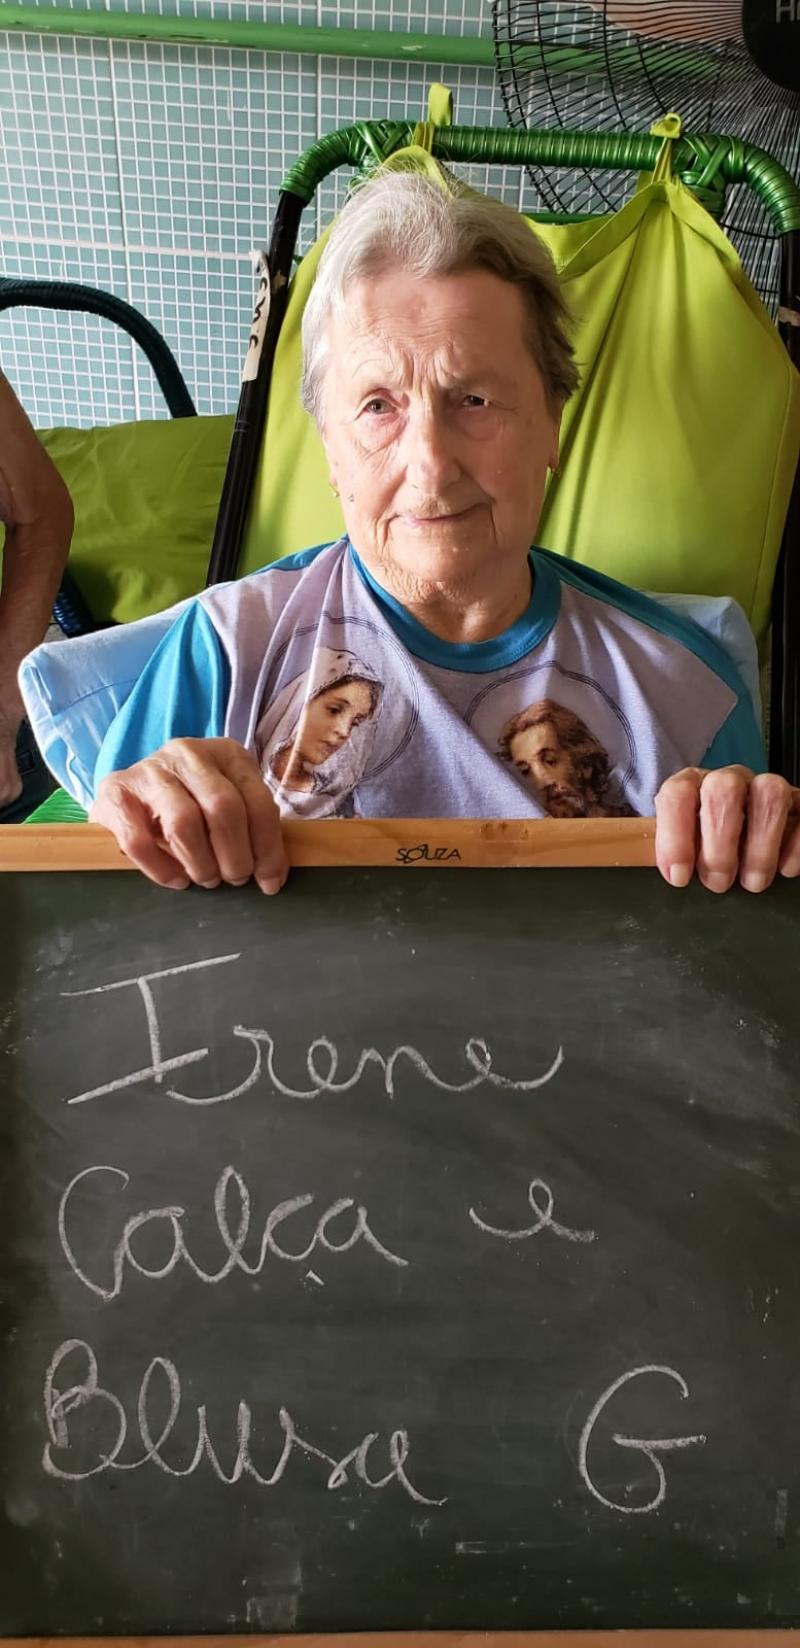 SOUZA
Irene
Calça e
Blusa G